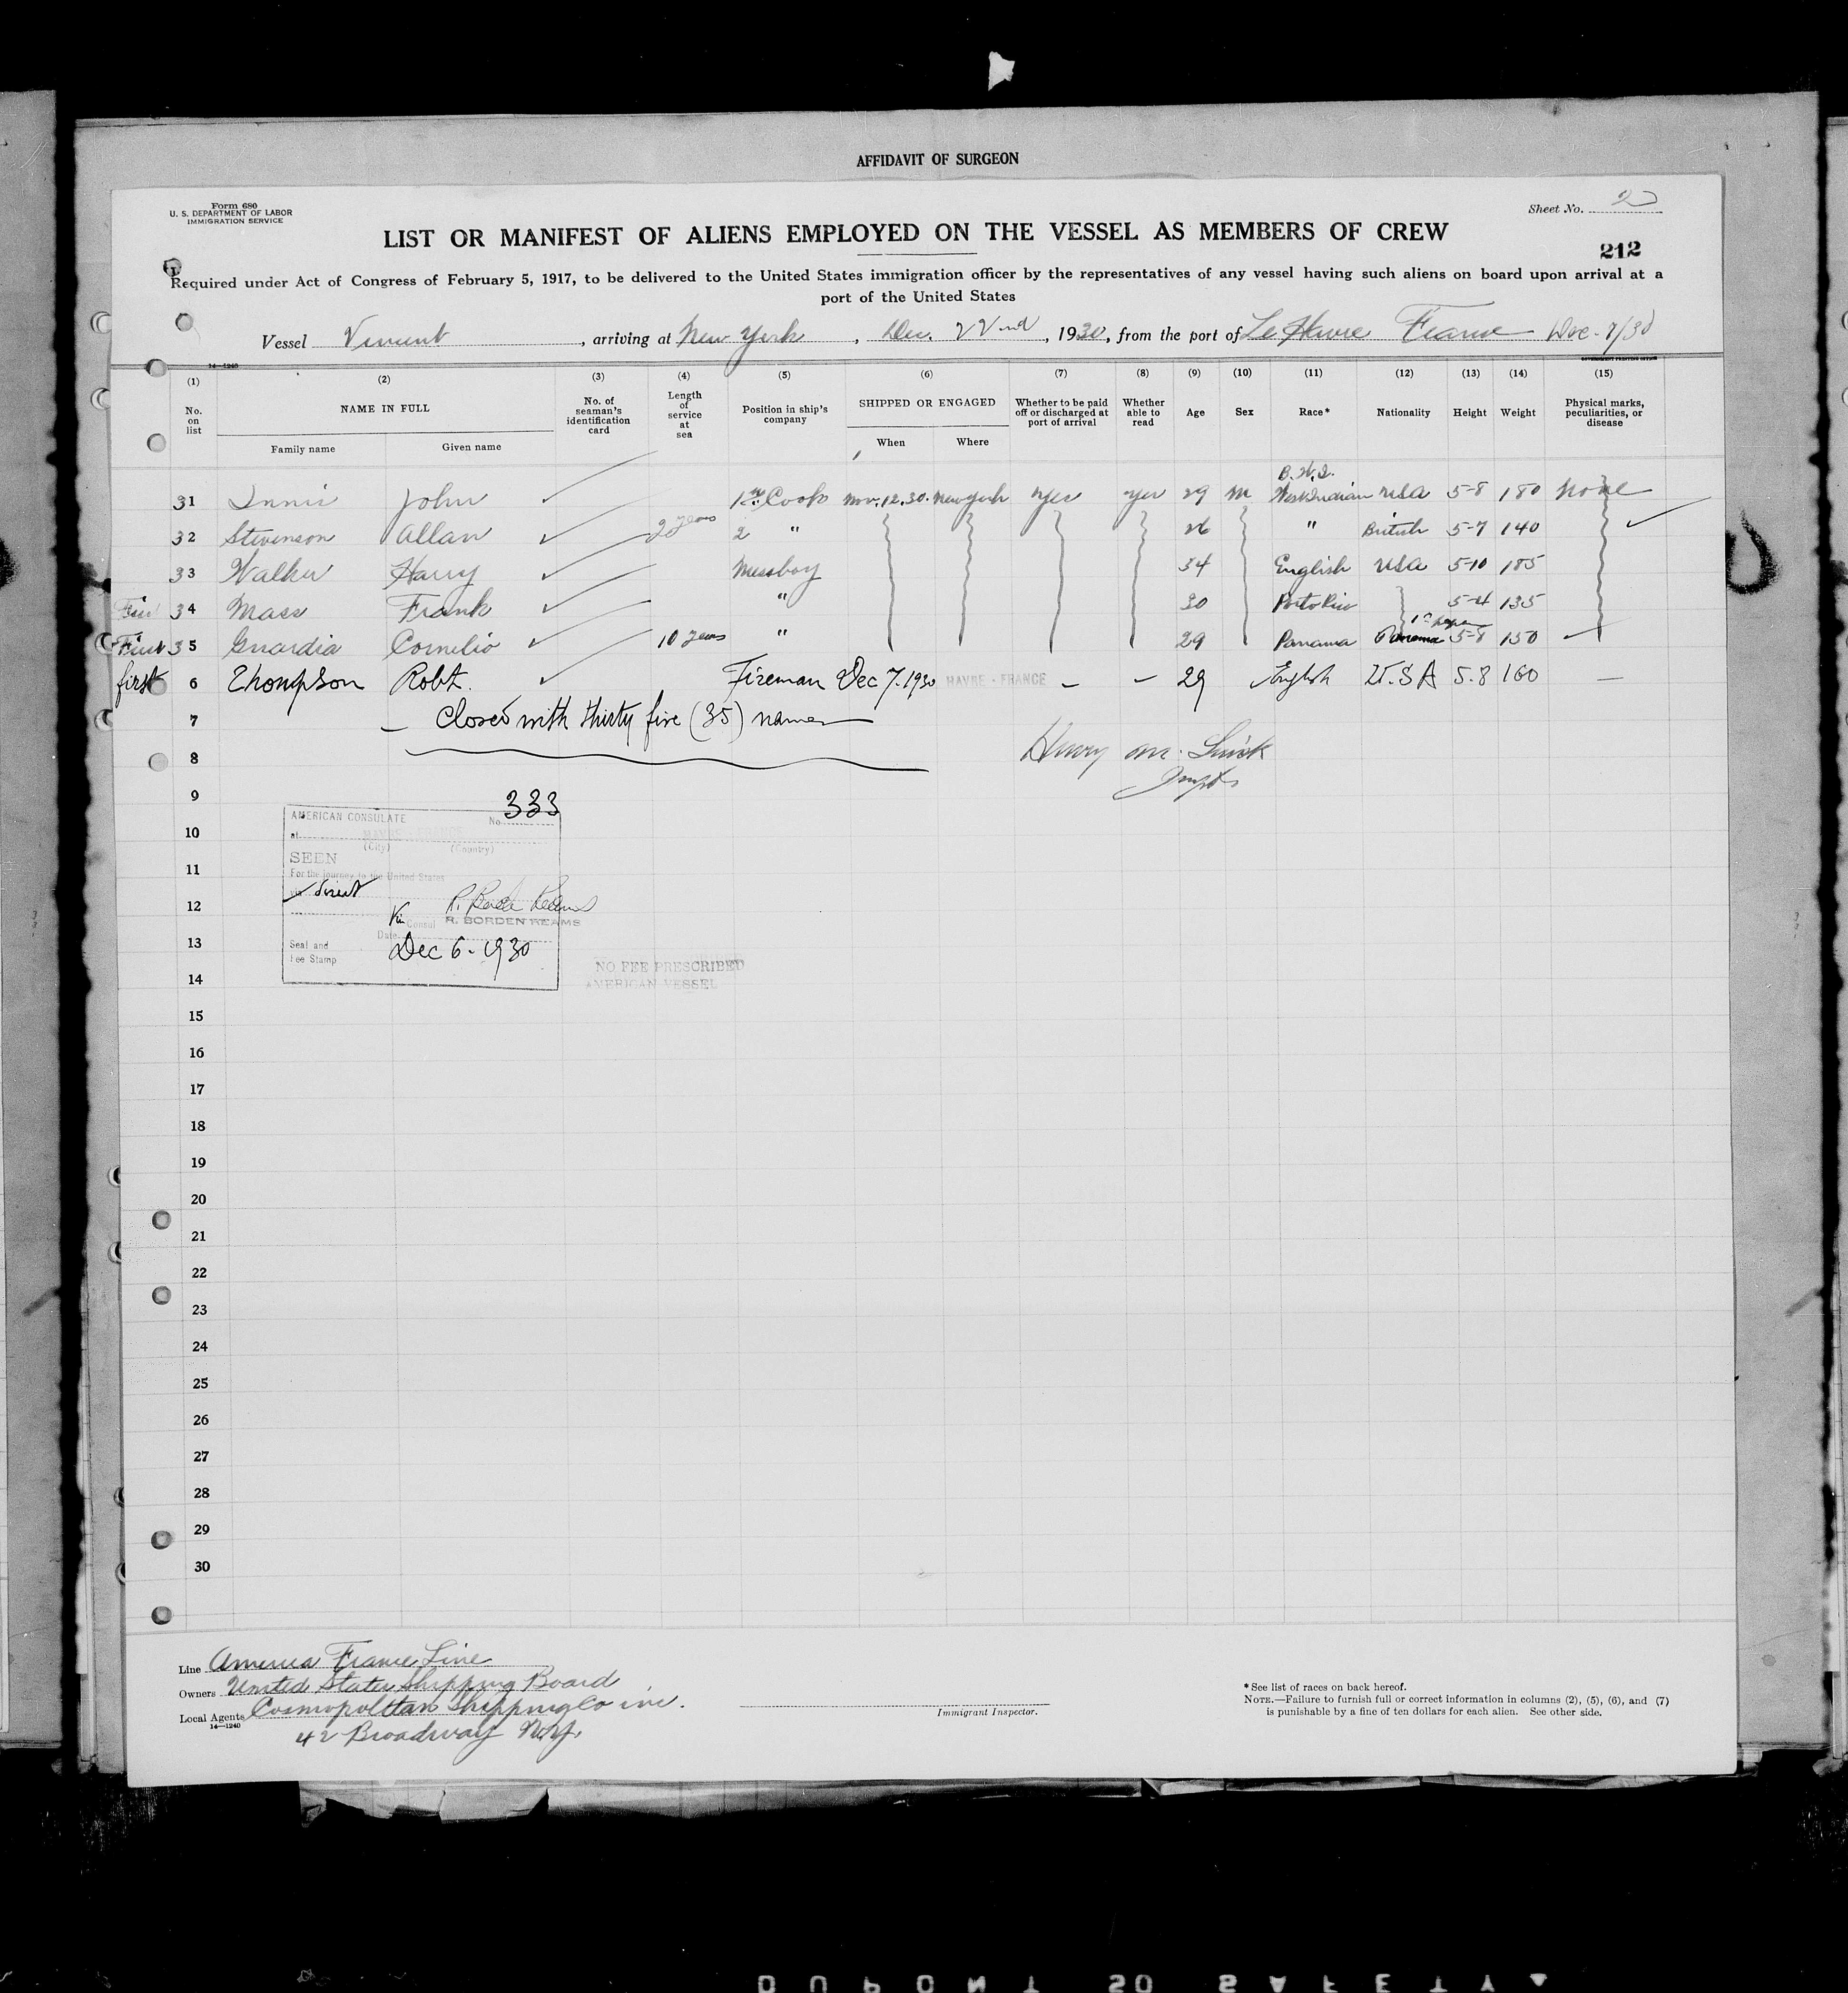 AFFIDAVIT OF SURGEON
Form 680
U. S. DEPARTMENT OF LABOR
IMMIGRATION SERVICE
Sheet No. 2
LIST OR MANIFEST OF ALIENS EMPLOYED ON THE VESSEL AS MEMBERS OF CREW
212
Required under Act of Congress of February 5, 1917, to be delivered to the United States immigration officer by the representatives of any vessel having such aliens on board upon arrival at a
port of the United States
Vessel Vincent, arriving at New York, Dec. 22nd, 1930, from the port of Le Havre France Dec. 7/30
14—1240 GOVERNMENT PRINTING OFFICE
(1) (2) (3) (4) (5) (6) (7) (8) (9) (10) (11) (12) (13) (14) (15)
No. on list NAME IN FULL Family name Given name No. of seaman's identification card Length of service at sea Position in ship's company SHIPPED OR ENGAGED When Where Whether to be paid off or discharged at port of arrival Whether able to read Age Sex Race* Nationality Height Weight Physical marks, peculiarities, or disease
B.W.I.
31 Innis John 1st Cook Nov. 12. 30. New York Yes Yes 29 M West Indian USA 5-8 180 None
32 Stevenson Allan 20 years 2 " 26 " British 5-7 140
33 Walker Harry Messboy 34 English USA 5-10 185
34 Mass Frank " 30 Porto Rico 5-4 135
First 35 Guardia Cornelio 10 years " 29 Panama Panama 5-8 150
first 6 Thompson Robt. Fireman Dec 7. 1930 HAVRE - FRANCE — — 29 English U.S A 5.8 160 —
7 — Closed with thirty five (35) names
8 Henry M.
9
10
11
12
13
14
15
16
17
18
19
20
21
22
23
24
25
26
27
28
29
30
AMERICAN CONSULATE No. 333
at HAVRE - FRANCE
(City) (Country)
SEEN
For the journey to the United States
via direct
R. Borden Reams
Vice Consul R. BORDEN REAMS
Date Dec 6. 1930
Seal and
Fee Stamp
NO FEE PRESCRIBED
AMERICAN VESSEL
Line America France Line
Owners United States Shipping Board
Local Agents Cosmopolitan Shipping Co inc.
14—1240
42 Broadway N.Y.
Immigrant Inspector.
* See list of races on back hereof.
NOTE.—Failure to furnish full or correct information in columns (2), (5), (6), and (7)
is punishable by a fine of ten dollars for each alien. See other side.
DUPONT SO SAFETY